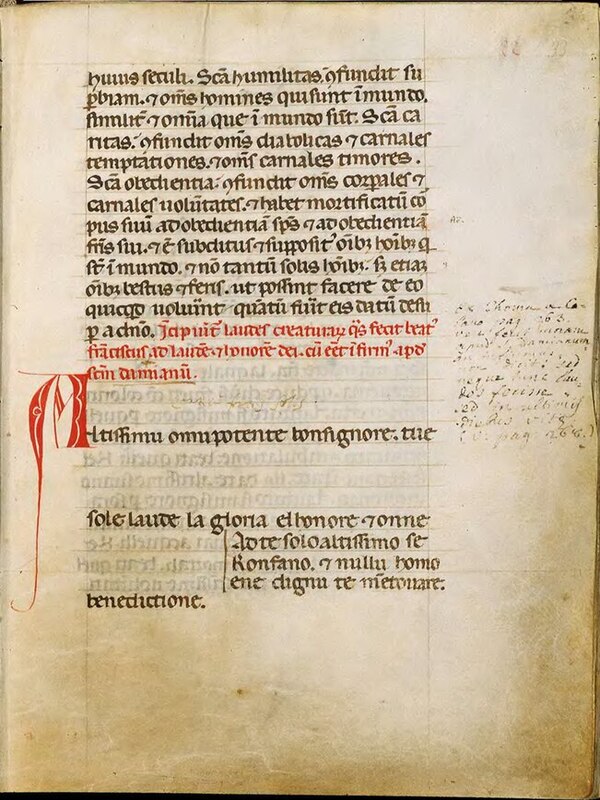 huius seculi. Scā humilitas, ꝯfundit su
ꝑbiam. ⁊ om̄s homines qui sunt ī mundo.
similit̄ ⁊ om̄ia que ī mundo sūt. Scā ca
ritas. ꝯfundit om̄s diabolicas ⁊ carnales
temptationes. ⁊ om̄s carnales timores.
Scā obedientia. ꝯfundit om̄s corꝑales ⁊
carnales uolūtates. ⁊ habet mortificatū cor
pus suū ad obedientiā sp̄s ⁊ ad obedientiā
fr̄is sui. ⁊ ē subditus ⁊ supposit᾽ oībꝫ hoībꝫ q̄
st̄ ī mundo. ⁊ nō tantū solis hoībꝫ. sꝫ etiaꝫ
oībꝫ bestiis ⁊ feris. ut possint facere de eo
quicqd uoluīnt quātū fūit eis datū desu
ꝑ a dn̄o. Īcipiūt laudes creaturaꝝ q̄s fecit beat᾽
frāciscus ad laudē ⁊ honorē dei. cū eēt ī firm᾽ apd̄
scm̄ damianū.
Altissimu omnipotente bonsignore. tue
sole laude la gloria elhonore ⁊ onne
Ad te solo altissimo se
Konfano. ⁊ nullu homo
ene dignu te mētouare.
benedictione.